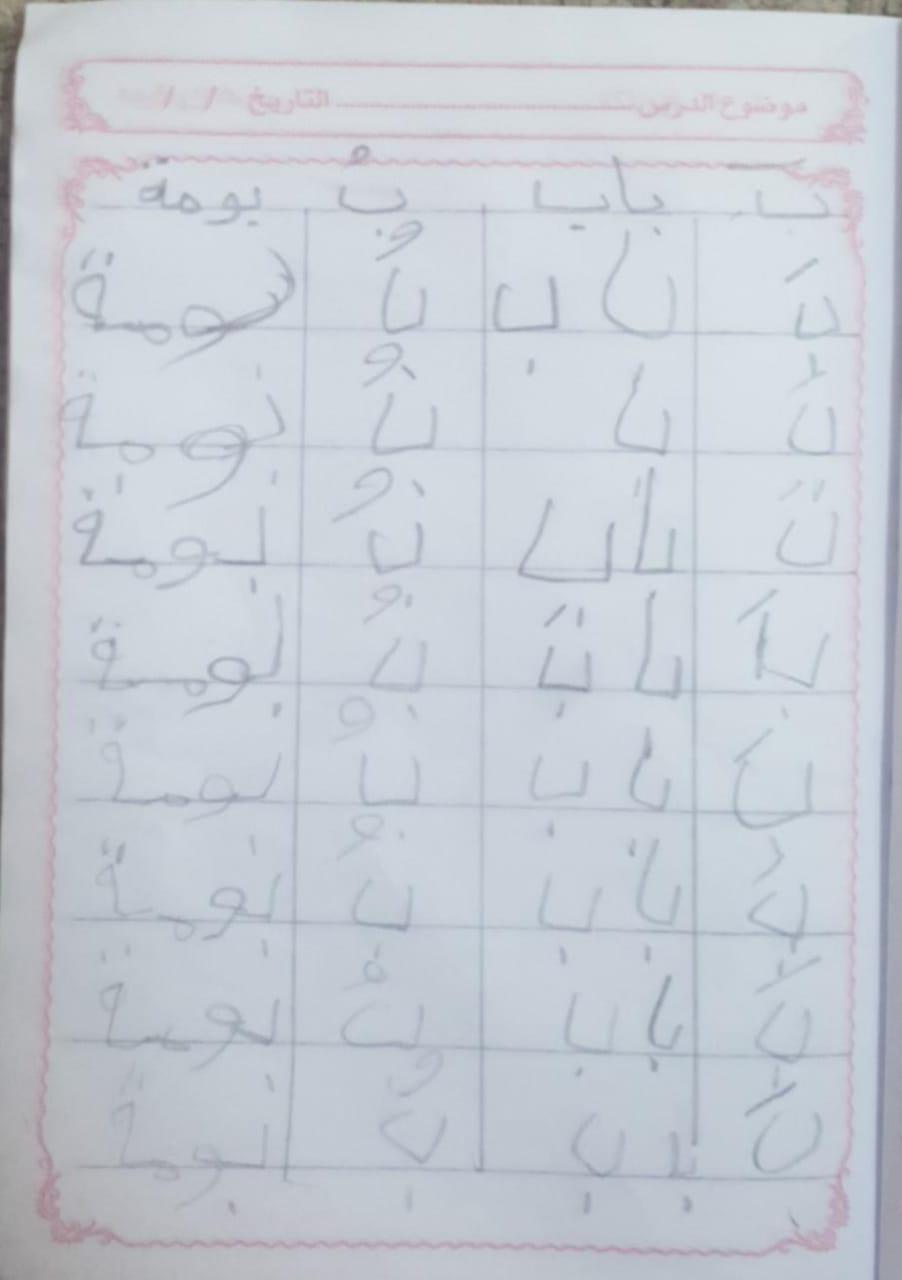 موضوع الدرس ........ التاريخ / /
بَ باب بُ بومة
بَ باب بُ بومة
بَ با بُ بومة
بَ باب بُ بومة
بَ باب بُ بومة
بَ باب بُ بومة
بَ باب بُ بومة
بَ باب بُ بومة
بَ باب بُ بومة